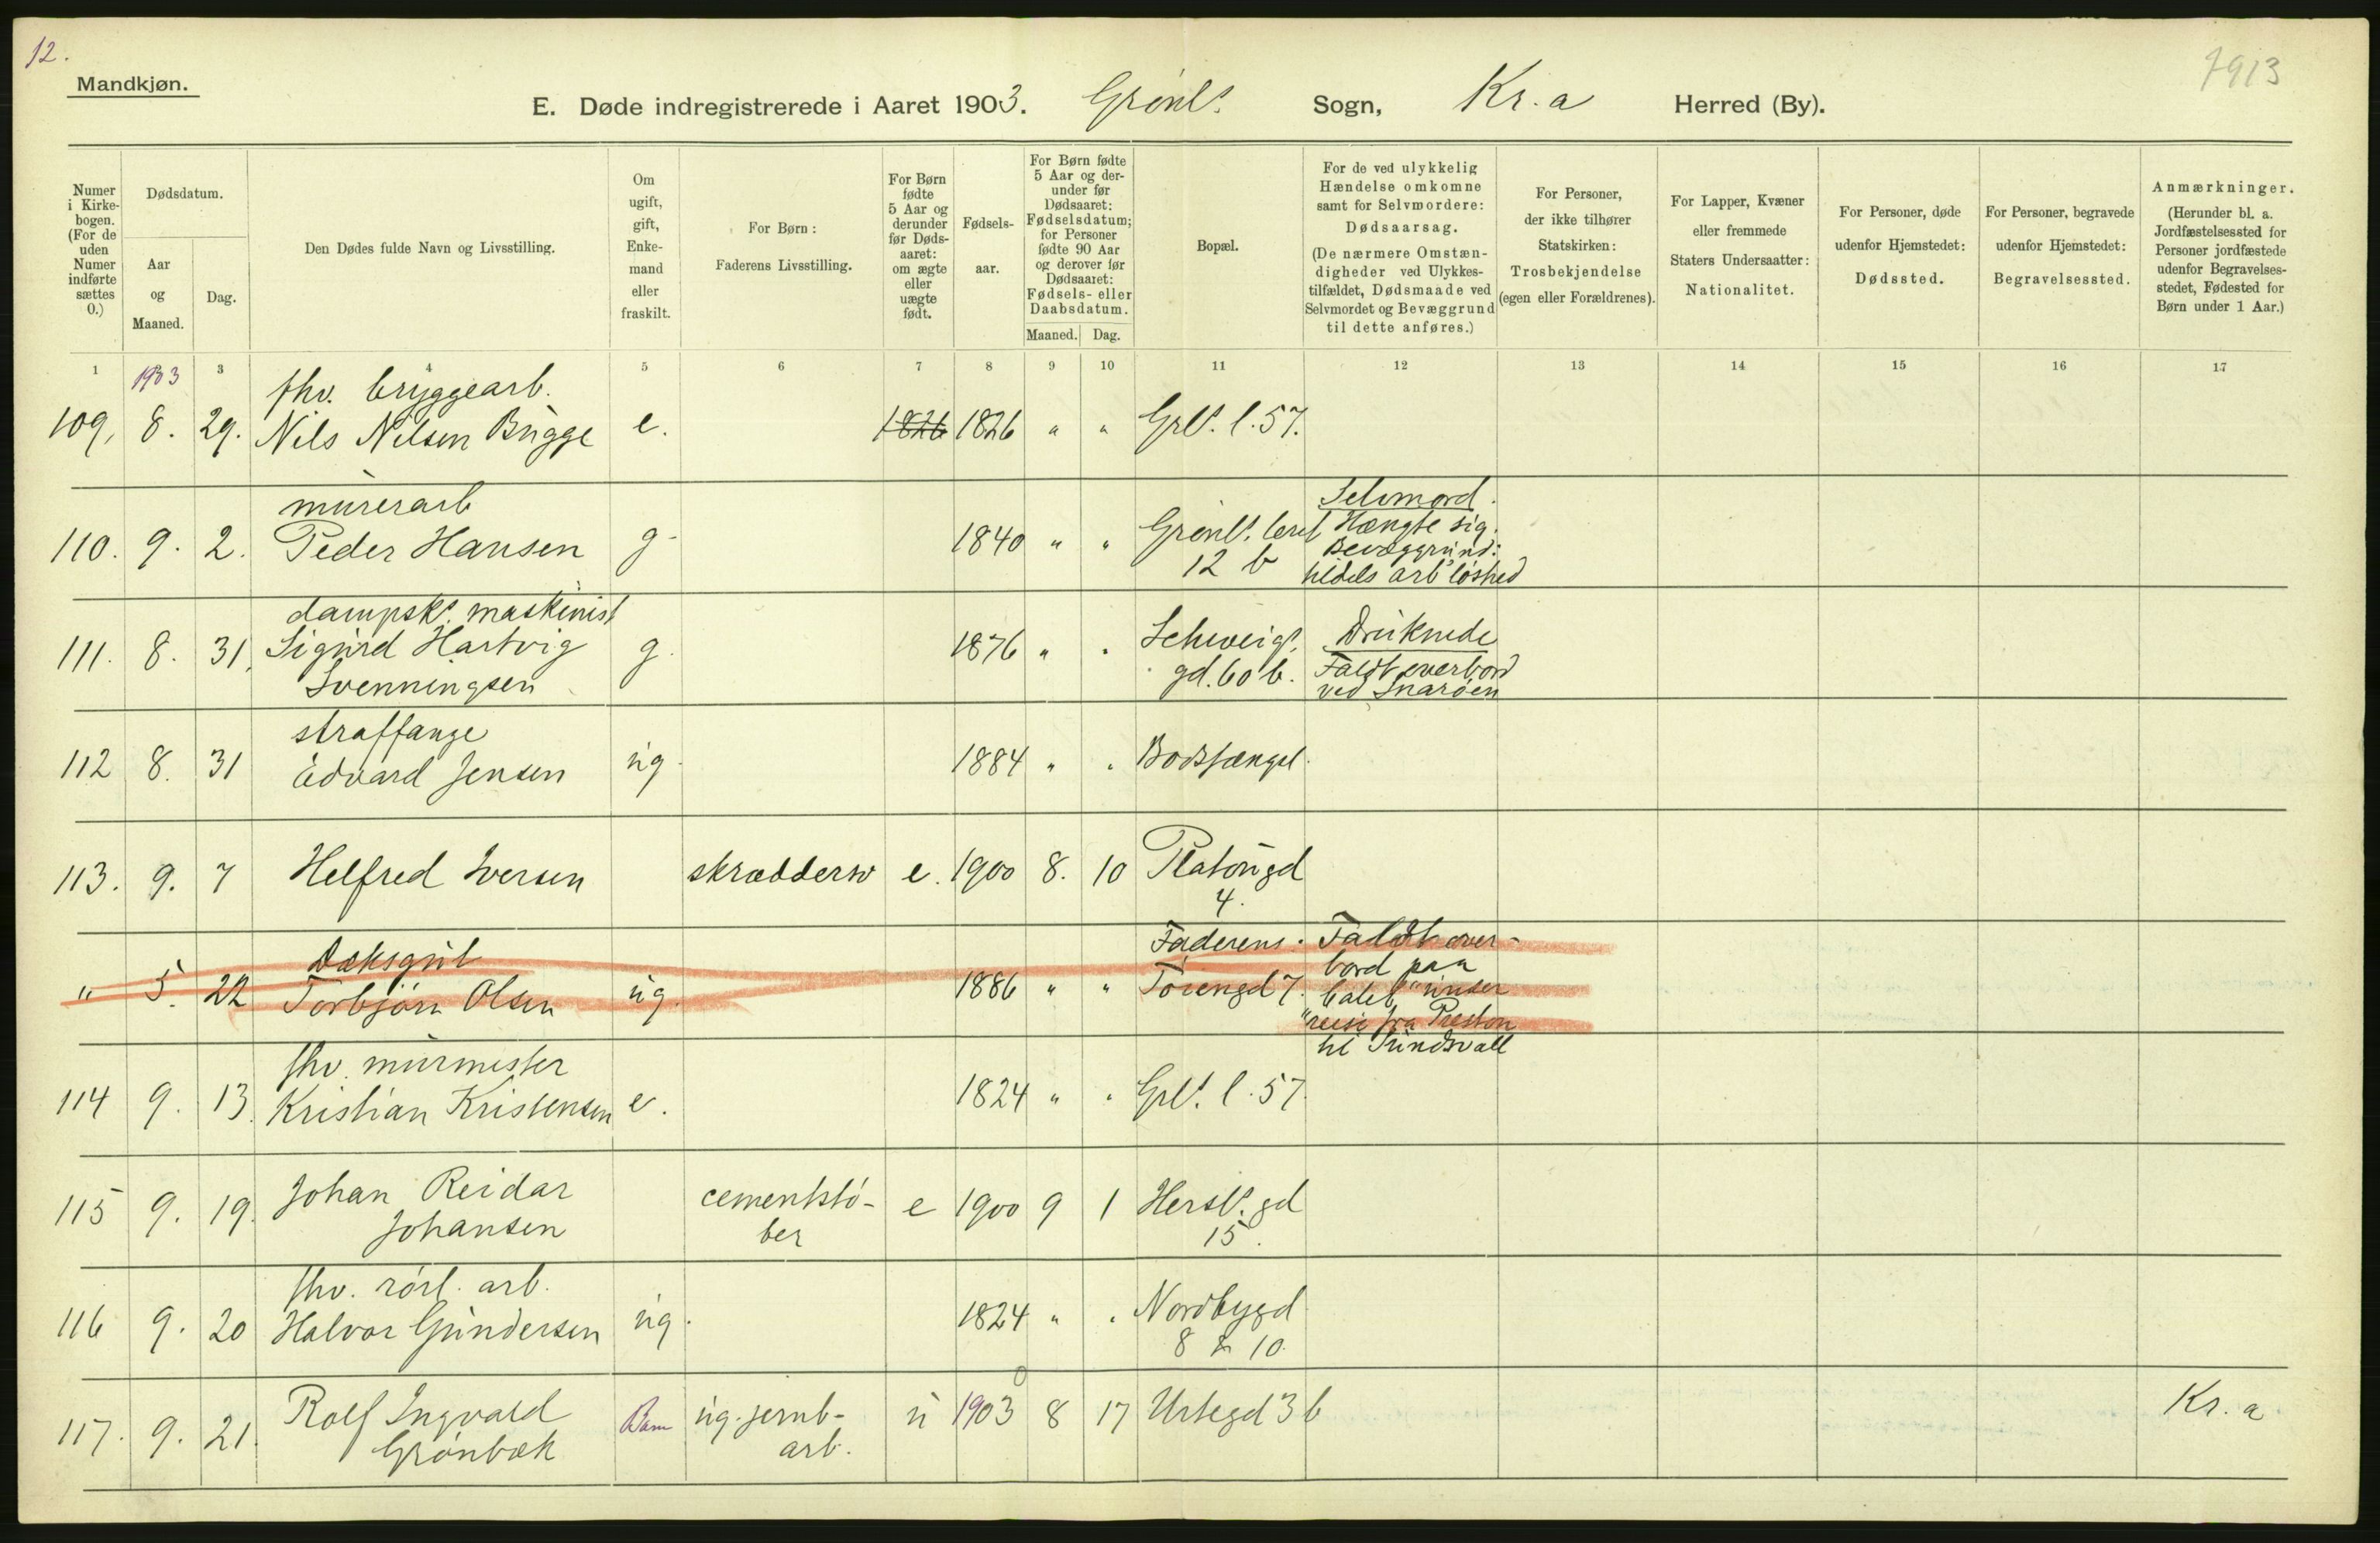 12.
7913
Mandkjøn.
E. Døde indregistrerede i Aaret 1903. Grønl. Sogn, Kr.a Herred (By).
Numer i Kirke-bogen. (For de uden Numer indførte sættes 0.)
Dødsdatum.
Aar og Maaned.
Dag.
Den Dødes fulde Navn og Livsstilling.
Om ugift, gift, Enke-mand eller fraskilt.
For Børn: Faderens Livsstilling.
For Børn fødte 5 Aar og derunder før Døds-aaret: om ægte eller uægte født.
Fødsels-aar.
For Børn fødte 5 Aar og der-under før Dødsaaret: Fødselsdatum; for Personer fødte 90 Aar og derover før Dødsaaret: Fødsels- eller Daabsdatum.
Maaned. Dag.
Bopæl.
For de ved ulykkelig Hændelse omkomne samt for Selvmordere: Dødsaarsag. (De nærmere Omstæn-digheder ved Ulykkes-tilfældet, Dødsmaade ved Selvmordet og Bevæggrund til dette anføres.)
For Personer, der ikke tilhører Statskirken: Trosbekjendelse (egen eller Forældrenes).
For Lapper, Kvæner eller fremmede Staters Undersaatter: Nationalitet.
For Personer, døde udenfor Hjemstedet: Dødssted.
For Personer, begravede udenfor Hjemstedet: Begravelsessted.
Anmærkninger. (Herunder bl. a. Jordfæstelsessted for Personer jordfæstede udenfor Begravelses-stedet, Fødested for Børn under 1 Aar.)
1 1903 3 4 5 6 7 8 9 10 11 12 13 14 15 16 17
fhv. bryggearb.
109, 8. 29. Nils Nilsen Bugge e. 1826 1826 " " Grl. l. 57.
murerarb Selvmord.
110. 9. 2. Peder Hansen g. 1840 " " Grønl. leret Hængte sig.
12 b Bevæggrund:
tildels arb'løshed
dampsk. maskinist
111. 8. 31. Sigurd Hartvig g. 1876 " " Schweig. Druknede
Svenningsen gd. 60 b. Faldt overbord
ved Snarøen
straffange
112 8. 31 Edvard Jensen ug. 1884 " " Bodsfængsl.
113. 9. 7 Helfred Iversen skræddersv e. 1900 8. 10 Platougd
4.
Dæksgut Faderens: Faldt over-
bord paa
" 5. 22 Torbjørn Olsen ug. 1886 " " Tøiengd 7. under
reise fra Preston
til Sundsvall
fhv. murmester
114 9. 13. Kristian Kristensen e. 1824 " " Grl. l. 57.
115 9. 19. Johan Reidar cementstø- e 1900 9 1 Hersl. gd
Johansen ber 15.
fhv. rørl. arb.
116 9. 20 Halvor Gundersen ug. 1824 " " Nordbygd
8 & 10.
117. 9. 21. Rolf Ingvald Barn ug. jernb- u 1903 8 17 Urtegd 3 b Kr. a
Grønbæk arb.
0